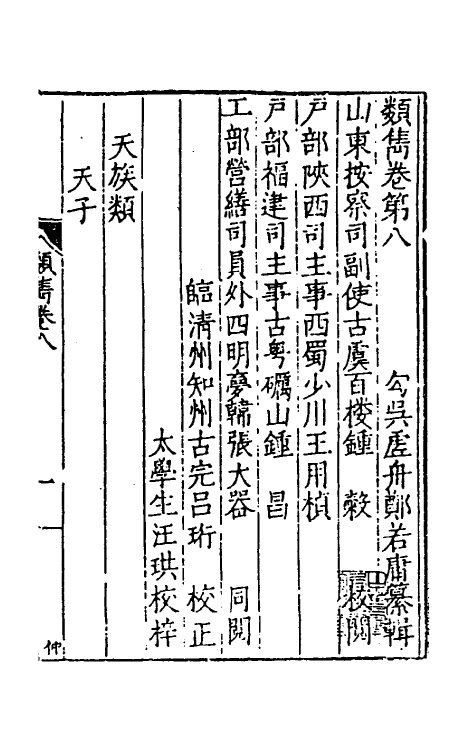 類雋卷第八　勾吳虛舟鄭若庸纂輯
山東按察司副使古虞百楼鍾　糓　校閱
戸部陝西司主事西蜀少川王用楨
戸部福建司主事古粤礪山鍾　昌
工部營繕司員外四明夢韓張大器　同閱
臨清州知州古完吕珩　校正
太學生汪珙校梓
天族類
天子
類雋卷八
一
仲